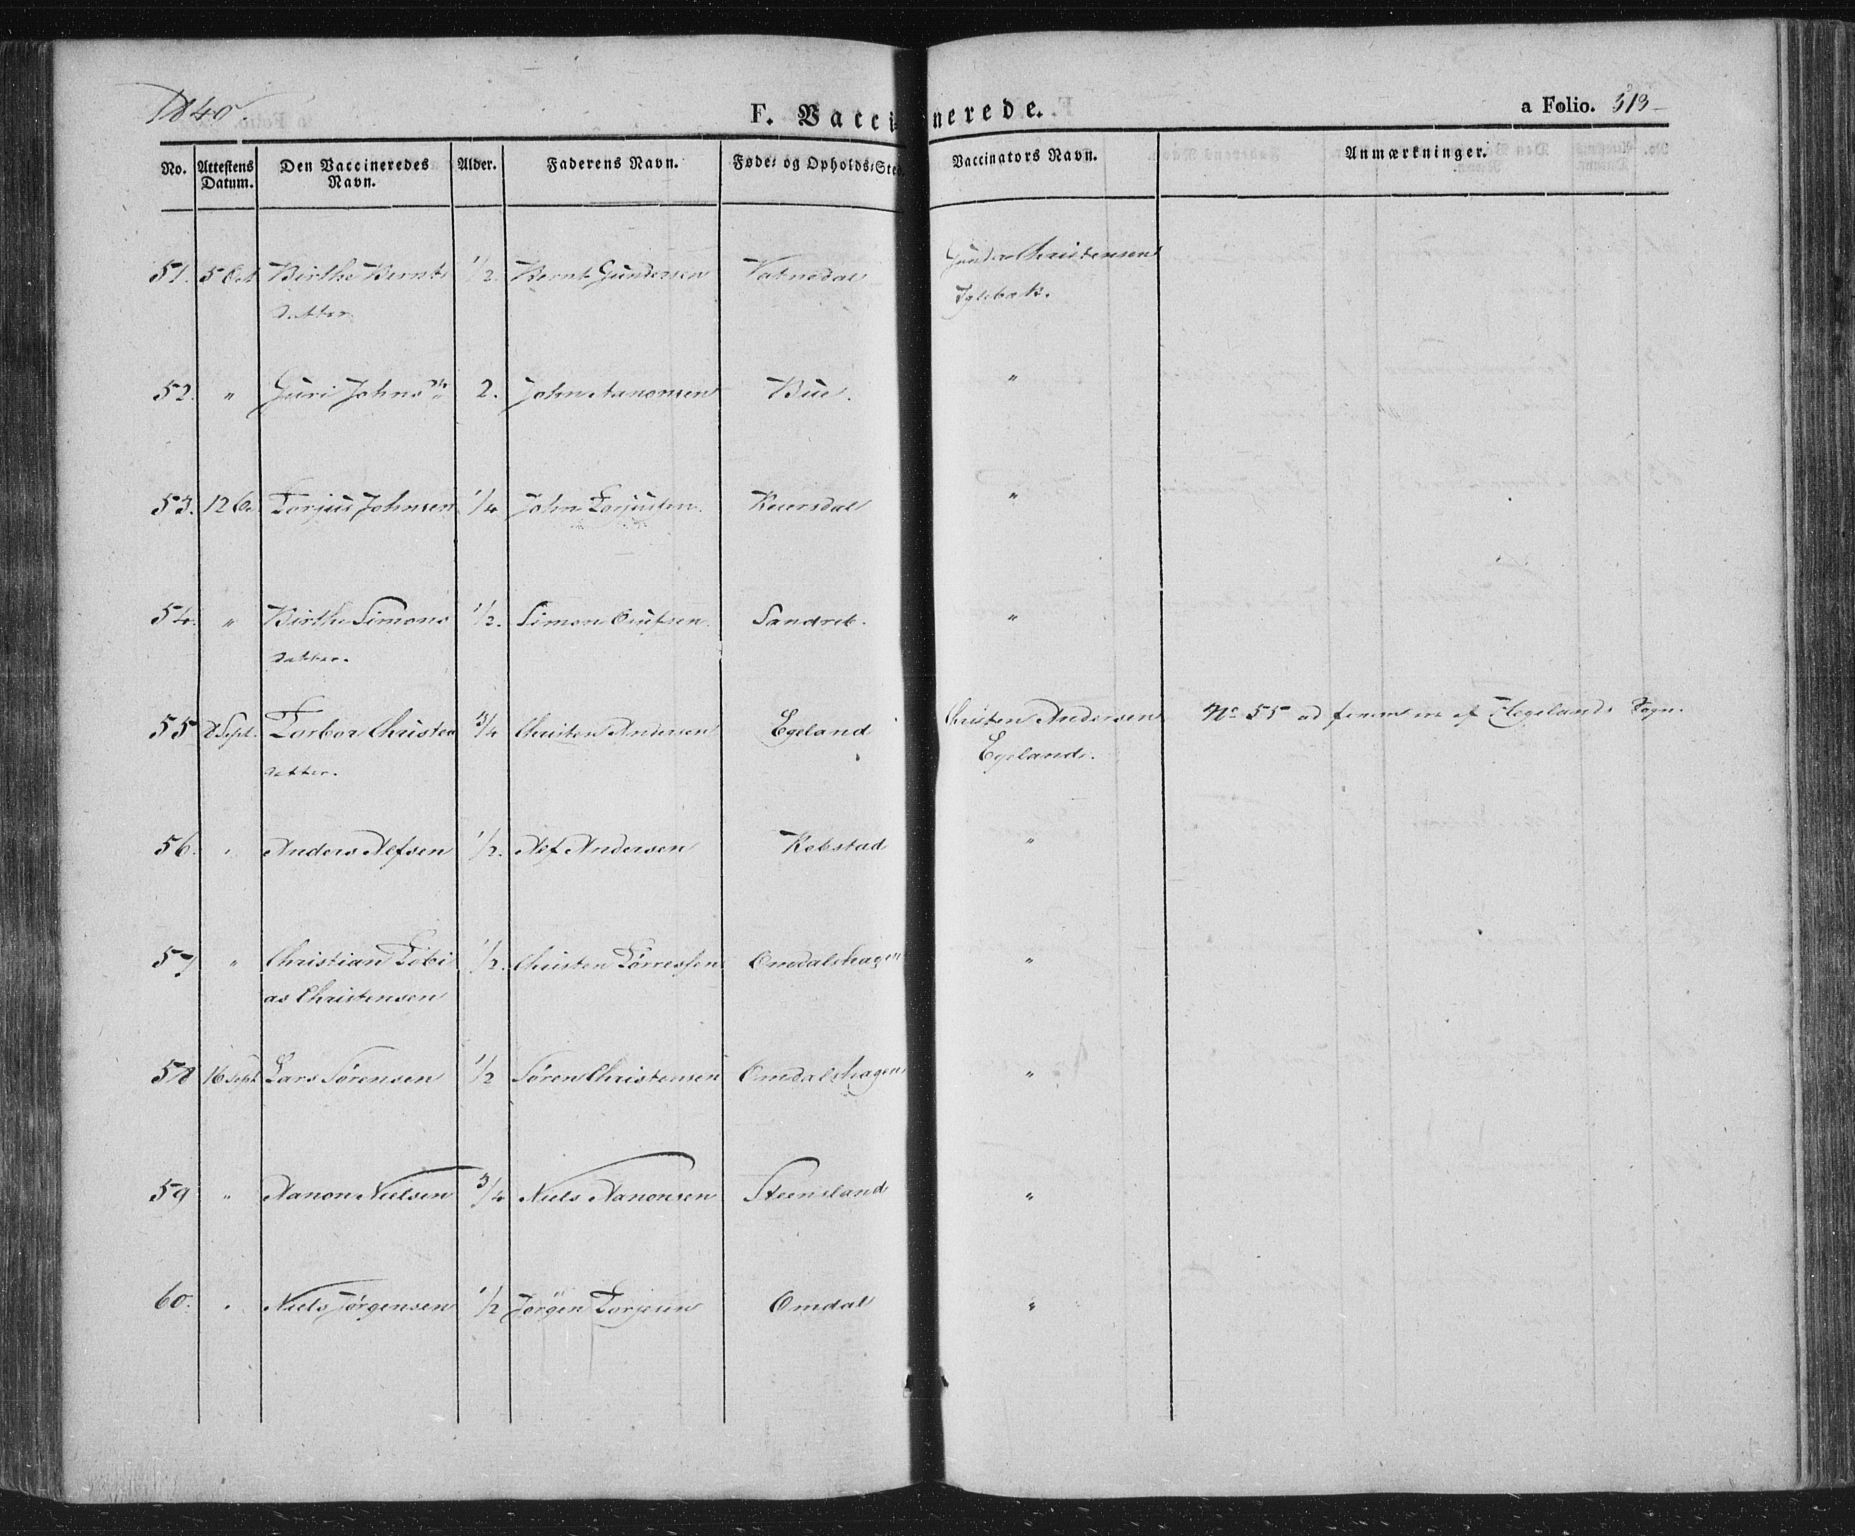 1840.
F. Vaccinerede.
a Folio. 313
No. Attestens Datum. Den Vaccineredes Navn. Alder. Faderens Navn. Føde- og Opholds-Sted. Vaccinators Navn. Anmærkninger.
51. 5 Oct Birthe Bernts 1/2. Bernt Gundersen Vatnedal Gunder Christensen
datter Iglebæk.
52. " Guri Johns 2. John Aanonsen Bue. "
53. 12 Oc Torjus Johnsen 1/4 John Torjusen "
54. " Birthe Simons 1/2. Simon Olufsen Sandrib. "
datter.
55 8 Sept. Torbor Christen 3/4 Christen Andersen Egeland Christen Andersen No 55 ad Hegelands Sogn.
datter. Egeland.
56. " Anders Alfsen 1/2. Alf Andersen Kobstad "
57 " Christian Tobi 1/2. Christen Tørresen Omdalshagen "
as Christensen
58 16 Sept Lars Sørensen 1/2 Søren Christensen Omdalshagen "
59 " Aanon Nielsen 3/4 Niels Aanonsen Steensland "
60. " Niels Jørgensen 1/2 Jørgen Torjesen Omdal "